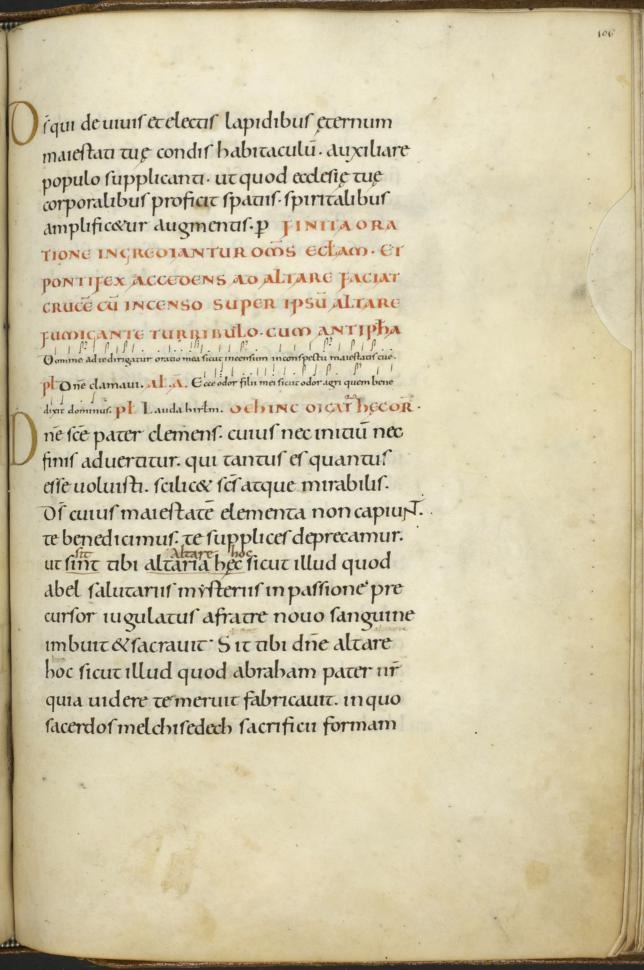 106
Ds̄ qui de uiuis et electis lapidibus ęternum
maiestati tuę condis habitaculū. auxiliare
populo supplicanti. ut quod ecclesię tuę
corporalibus proficit spatiis. spiritalibus
amplific&ur augmentis. p̄ FINITA ORA
TIONE INGREDIANTUR OM̄S ECLAM. ET
PONTIFEX ACCEDENS AD ALTARE FACIAT
CRUCĒ CŪ INCENSO SUPER IPSŪ ALTARE
FUMIGANTE TURRIBULO. CUM ANTIPHA
Domine ad te dirigatur oratio mea sicut incensum in conspectu maiestatis tue.
pł Dn̄e clamaui. AL. A. Ecce odor filii mei sicut odor agri quem bene
dixit dominus. pł Lauda hirlm. DEHINC DICATUR HĘC OR.
Dn̄e sc̄e pater clemens. cuius nec initiū nec
finis aduertitur. qui tantus es quantus
esse uoluisti. scilic& sc̄s atque mirabilis.
Ds̄ cuius maiestatē elementa non capiuNT.
te benedicimus. te supplices deprecamur.
sit Altare hoc
ut sint tibi altaria hęc sicut illud quod
abel salutariis mysteriis in passione pre
cursor iugulatus a fratre nouo sanguine
imbuit & sacrauit. Sit tibi dn̄e altare
hoc sicut illud quod abraham pater nr̄
quia uidere te meruit fabricauit. in quo
sacerdos melchisedech sacrificii formam